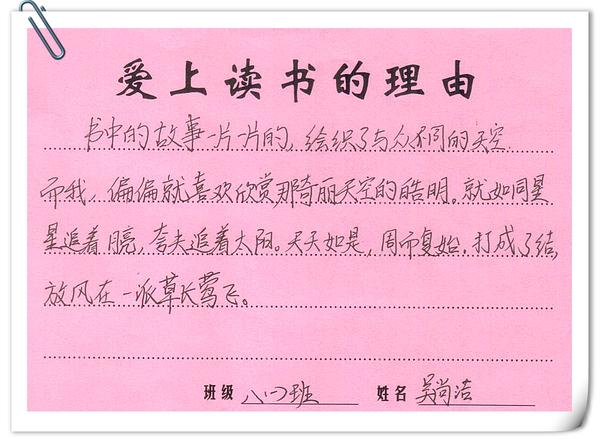 爱上读书的理由
书中的故事一片一片的，绘织了与众不同的天空.
而我，偏偏就喜欢欣赏那奇丽天空的皓明。就如同星
星追着月亮，夸夫追着太阳。天天如是，周而复始，打成了结，
放风在一派草长莺飞。
班级 八〈1〉班 姓名 吴尚洁